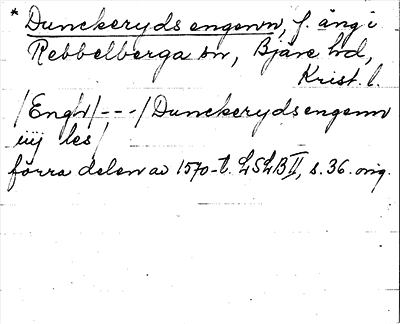 * Dunckeryds engenn, f. äng i
Rebbelberga sn, Bjäre hd,
Krist. l.
/Engh/---/Dunckerydsengenn
iiij les/
förra delen av 1570-t. LSLB II, s. 36. orig.